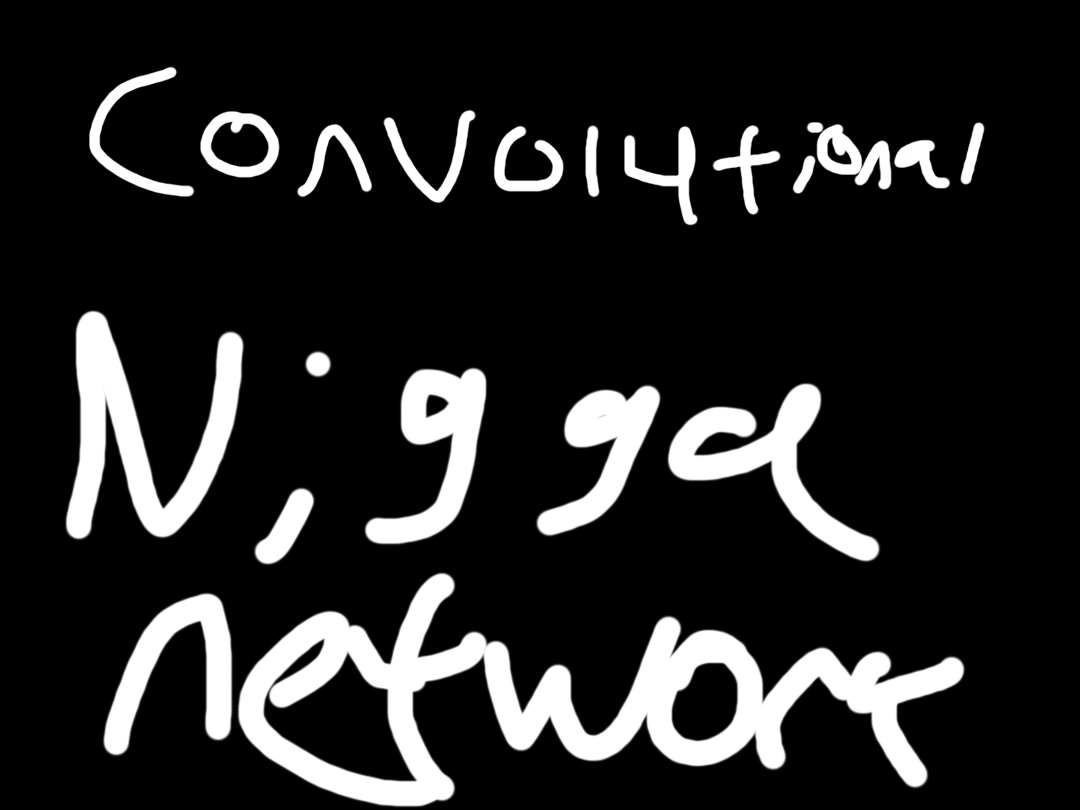 Convolutional
Nigga
network